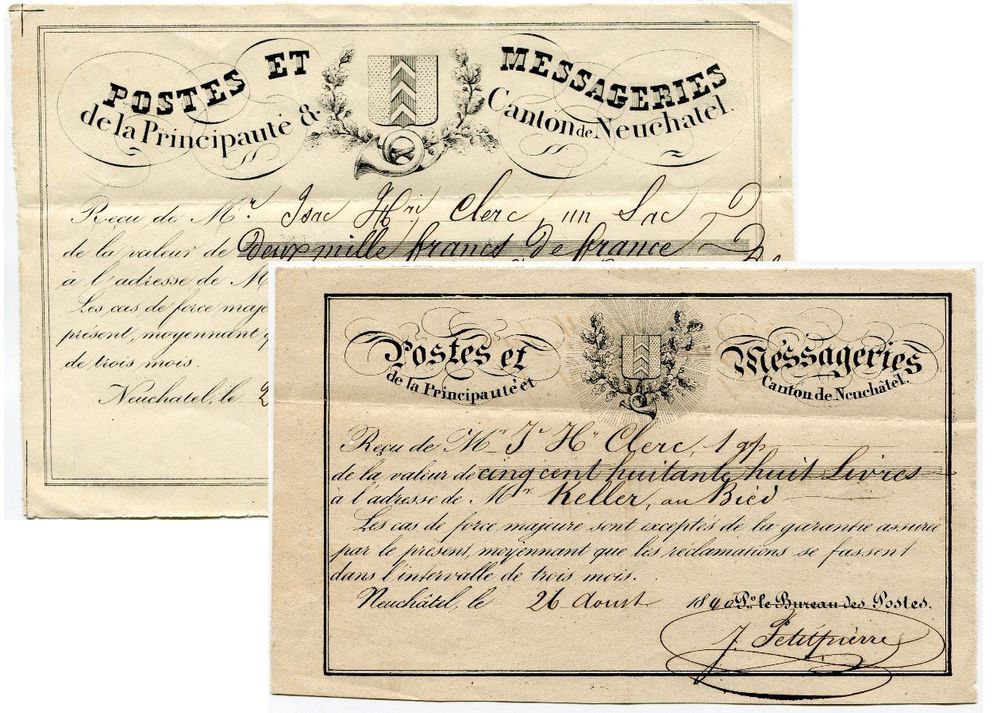 POSTES ET MESSAGERIES
de la Principauté & Canton de Neuchatel.
Reçu de Mr. Isac Hri Clerc, un Sac
de la valeur de Deux mille francs de france
à l'adresse de M
Les cas de force maje
présent, moyennant q
de trois mois.
Neuchatel, le 2
Postes et Messageries
de la Principauté et Canton de Neuchâtel.
Reçu de Mr Je He Clerc, 1 gp
de la valeur de cinq cent huitante huit Livres
à l'adresse de Mr Keller, au Bied
Les cas de force majeure sont exceptés de la garantie assurée
par le présent, moyennant que les réclamations se fassent
dans l'intervalle de trois mois.
Neuchâtel, le 26 Aoust 1840 Pr. le Bureau des Postes.
J. Petitpierre